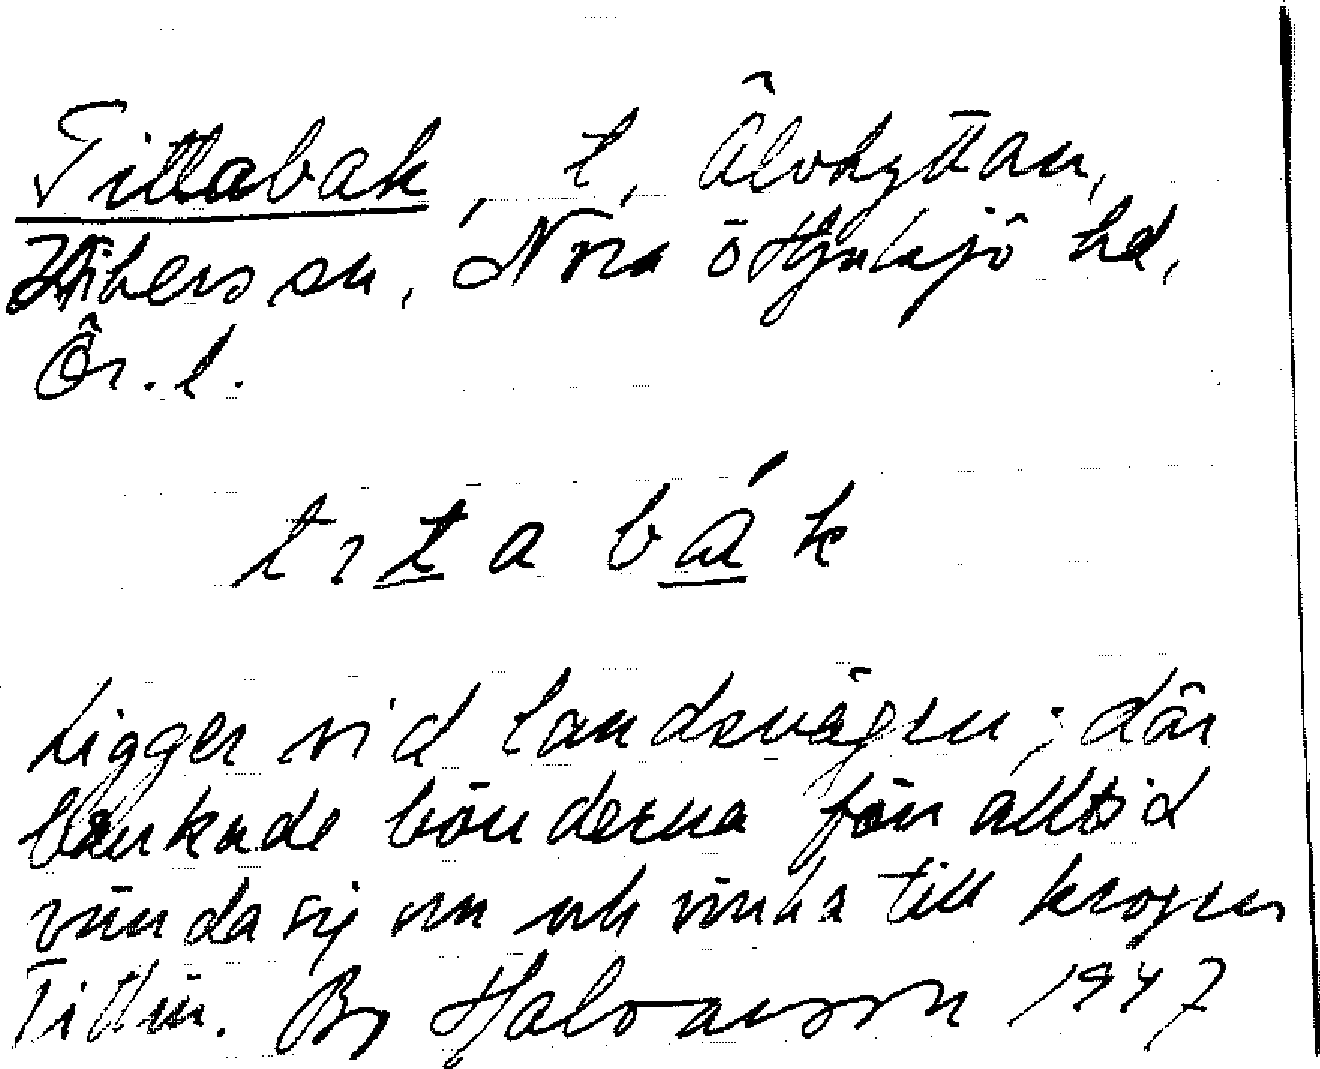 Tittabak, t, Älvhyttan,
Vikers sn, Nora o Hjulsjö hd,
Ör. l.
tıtabák
Ligger vid landsvägen; där
brukade bönderna förr alltid
vända sig om och vinka till krogen
Tittin. By Halvarsson 1947